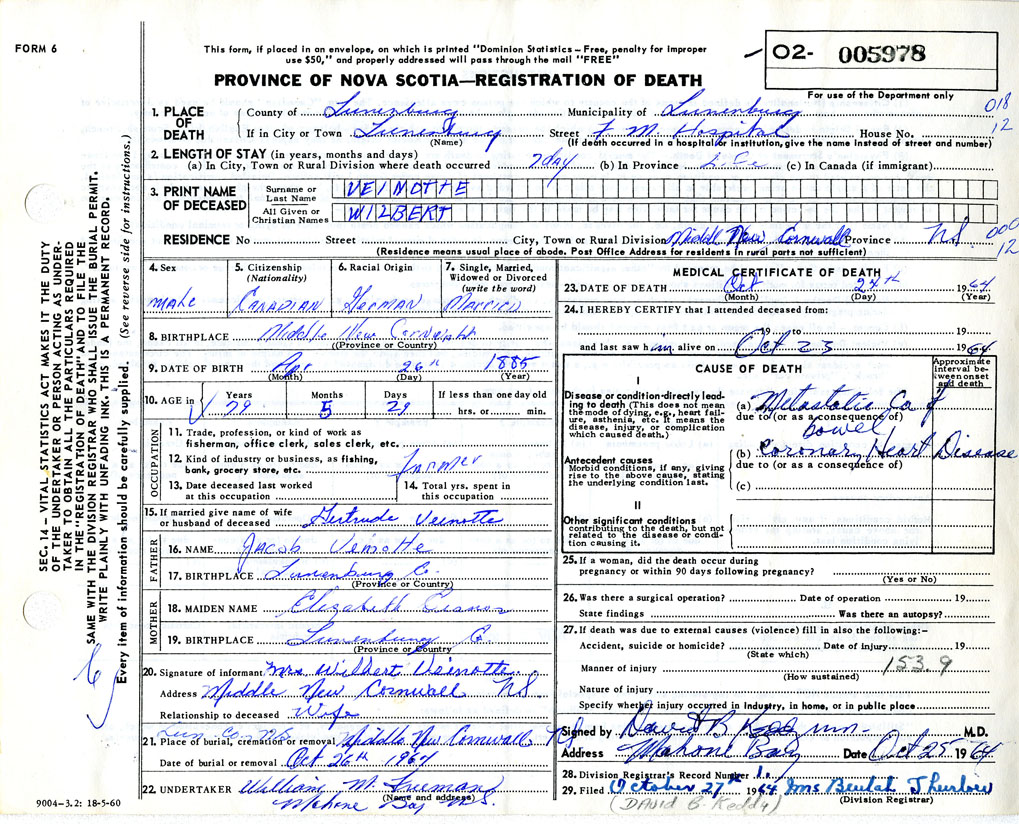 FORM 6
This form, if placed in an envelope, on which is printed "Dominion Statistics – Free, penalty for improper
use $50," and properly addressed will pass through the mail "FREE"
O2- 005978
PROVINCE OF NOVA SCOTIA—REGISTRATION OF DEATH
For use of the Department only
018
12
1. PLACE OF DEATH
County of Lunenburg Municipality of Lunenburg
If in City or Town Lunenburg Street F. M. Hospital House No.
(Name) (If death occurred in a hospital or institution, give the name instead of street and number)
2. LENGTH OF STAY (in years, months and days)
(a) In City, Town or Rural Division where death occurred 7 day (b) In Province Life (c) In Canada (if immigrant)
3. PRINT NAME OF DECEASED
Surname or Last Name VEINOTTE
All Given or Christian Names WILBERT
RESIDENCE No Street City, Town or Rural Division Middle New Cornwall Province N.S.
000
12
(Residence means usual place of abode. Post Office Address for residents in rural parts not sufficient)
4. Sex 5. Citizenship (Nationality) 6. Racial Origin 7. Single, Married, Widowed or Divorced (write the word)
male Canadian German Married
8. BIRTHPLACE Middle New Cornwall
(Province or Country)
9. DATE OF BIRTH Apr 26th 1885
(Month) (Day) (Year)
10. AGE in Years Months Days If less than one day old
79 5 29 hrs. or min.
OCCUPATION
11. Trade, profession, or kind of work as
fisherman, office clerk, sales clerk, etc.
12. Kind of industry or business, as fishing,
bank, grocery store, etc. Farmer
13. Date deceased last worked
at this occupation
14. Total yrs. spent in
this occupation
15. If married give name of wife
or husband of deceased Gertrude Veinotte
FATHER
16. NAME Jacob Veinotte
17. BIRTHPLACE Lunenburg C.
(Province or Country)
MOTHER
18. MAIDEN NAME Elizabeth
19. BIRTHPLACE Lunenburg C.
(Province or Country)
20. Signature of informant Mrs Wilbert Veinotte
Address Middle New Cornwall N.S.
Relationship to deceased Wife
Lun Co. N.S.
21. Place of burial, cremation or removal Middle New Cornwall N.S
Date of burial or removal Oct 26th 1964
22. UNDERTAKER William M. Trueman
(Name and address)
Mahone Bay N.S.
9004-3.2: 18-5-60
MEDICAL CERTIFICATE OF DEATH
23. DATE OF DEATH Oct 24th 1964
(Month) (Day) (Year)
24. I HEREBY CERTIFY that I attended deceased from:
19 to 19
and last saw him alive on Oct 23 1964
CAUSE OF DEATH
Approximate interval between onset and death
I
Disease or condition directly leading to death (This does not mean the mode of dying, e.g., heart failure, asthenia, etc. It means the disease, injury, or complication which caused death.)
(a) Metastatic Ca of
due to (or as a consequence of)
bowel
(b) Coronary Heart Disease
due to (or as a consequence of)
(c)
Antecedent causes
Morbid conditions, if any, giving rise to the above cause, stating the underlying condition last.
II
Other significant conditions
contributing to the death, but not related to the disease or condition causing it.
25. If a woman, did the death occur during
pregnancy or within 90 days following pregnancy?
(Yes or No)
26. Was there a surgical operation? Date of operation 19
State findings Was there an autopsy?
27. If death was due to external causes (violence) fill in also the following:–
Accident, suicide or homicide? Date of injury 19
(State which)
Manner of injury 153.9
(How sustained)
Nature of injury
Specify whether injury occurred in industry, in home, or in public place
Signed by David B Keddy M.D.
Address Mahone Bay Date Oct 25 1964
28. Division Registrar's Record Number
29. Filed October 27th 1964 Mrs Beulah Thurlow
(DAVID B. KEDDY) (Division Registrar)
SEC. 14 – VITAL STATISTICS ACT MAKES IT THE DUTY
OF THE UNDERTAKER OR PERSON ACTING AS UNDER-
TAKER TO OBTAIN ALL THE PARTICULARS REQUIRED
IN THE "REGISTRATION OF DEATH" AND TO FILE THE
SAME WITH THE DIVISION REGISTRAR WHO SHALL ISSUE THE BURIAL PERMIT.
WRITE PLAINLY WITH UNFADING INK. THIS IS A PERMANENT RECORD.
Every item of information should be carefully supplied. (See reverse side for instructions.)